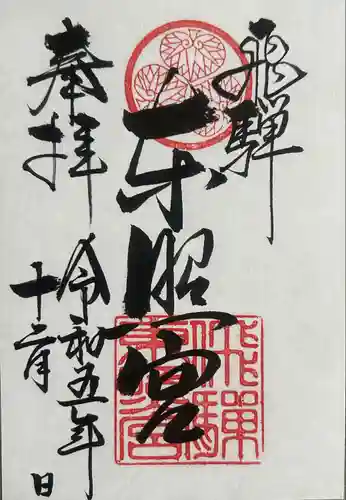 飛騨
東照宮
奉拝
令和五年
十二月
日
飛騨東照宮